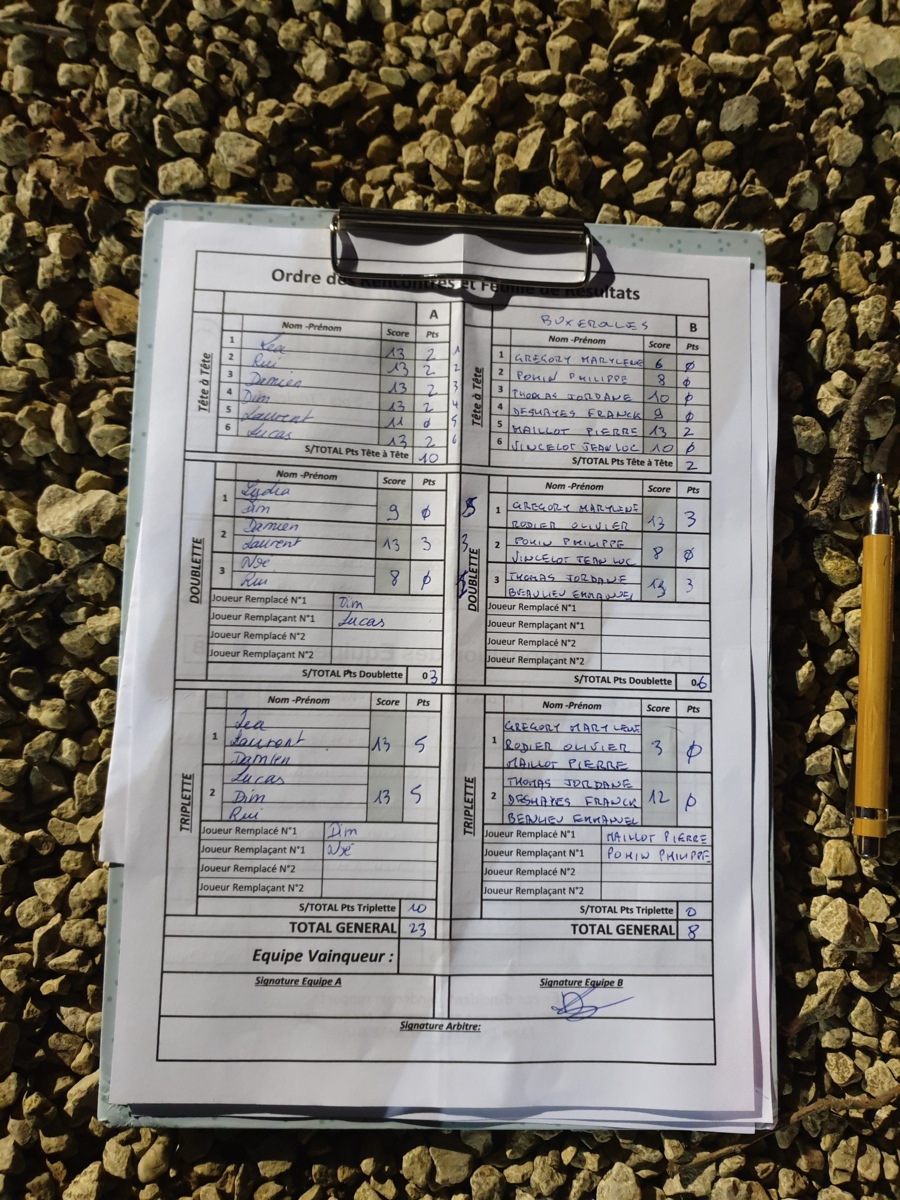 Ordre des Rencontres et Feuille de Résultats
A
Tête à Tête
Nom -Prénom Score Pts
1 Lea 13 2 1
2 Rui 13 2 2
3 Damien 13 2 3
4 Dim 13 2 4
5 Laurent 11 0 5
6 Lucas 13 2 6
S/TOTAL Pts Tête à Tête 10
BUXEROLLES B
Tête à Tête
Nom -Prénom Score Pts
1 GREGORY MARYLENE 6 0
2 POMIN PHILIPPE 8 0
3 THOMAS JORDANE 10 0
4 DESHAYES FRANCK 9 0
5 MAILLOT PIERRE 13 2
6 VINCELOT JEAN LUC 10 0
S/TOTAL Pts Tête à Tête 2
DOUBLETTE
Nom -Prénom Score Pts
1 Lydia
Dim 9 0
2 Damien
Laurent 13 3
3
Rui 8 0
Joueur Remplacé N°1 Dim
Joueur Remplaçant N°1 Lucas
Joueur Remplacé N°2
Joueur Remplaçant N°2
S/TOTAL Pts Doublette 03
DOUBLETTE
Nom -Prénom Score Pts
1 GREGORY MARYLENE
RODIER OLIVIER 13 3
2 POMIN PHILIPPE
VINCELOT JEAN LUC 8 0
3 THOMAS JORDANE
BEAULIEU EMMANUEL 13 3
Joueur Remplacé N°1
Joueur Remplaçant N°1
Joueur Remplacé N°2
Joueur Remplaçant N°2
S/TOTAL Pts Doublette 06
TRIPLETTE
Nom -Prénom Score Pts
1 Lea
Laurent 13 5
Damien
2 Lucas
Dim 13 5
Rui
Joueur Remplacé N°1 Dim
Joueur Remplaçant N°1
Joueur Remplacé N°2
Joueur Remplaçant N°2
S/TOTAL Pts Triplette 10
TOTAL GENERAL 23
TRIPLETTE
Nom -Prénom Score Pts
1 GREGORY MARYLENE
RODIER OLIVIER 3 0
MAILLOT PIERRE
2 THOMAS JORDANE
DESHAYES FRANCK 12 0
BEAULIEU EMMANUEL
Joueur Remplacé N°1 MAILLOT PIERRE
Joueur Remplaçant N°1 POMIN PHILIPPE
Joueur Remplacé N°2
Joueur Remplaçant N°2
S/TOTAL Pts Triplette 0
TOTAL GENERAL 8
Equipe Vainqueur :
Signature Equipe A
Signature Equipe B
Signature Arbitre: